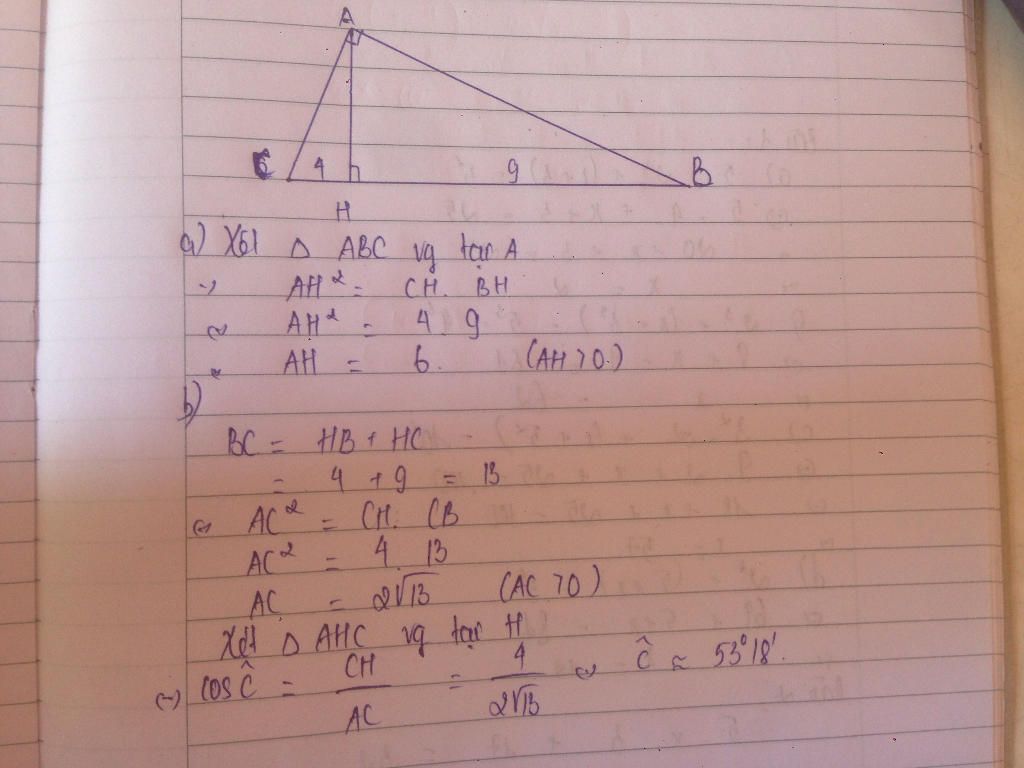 A
C 4 9 B
H
a) Xét Δ ABC vg tại A
=> AH² = CH. BH
<=> AH² = 4 9
AH = 6. (AH > 0.)
b)
BC = HB + HC
= 4 + 9 = 13
<=> AC² = CH. CB
AC² = 4. 13
AC = 2√13 (AC > 0)
Xét Δ AHC vg tại H
(=) cos Ĉ = CH/AC = 4/2√13 <=> Ĉ ≈ 53°18'.